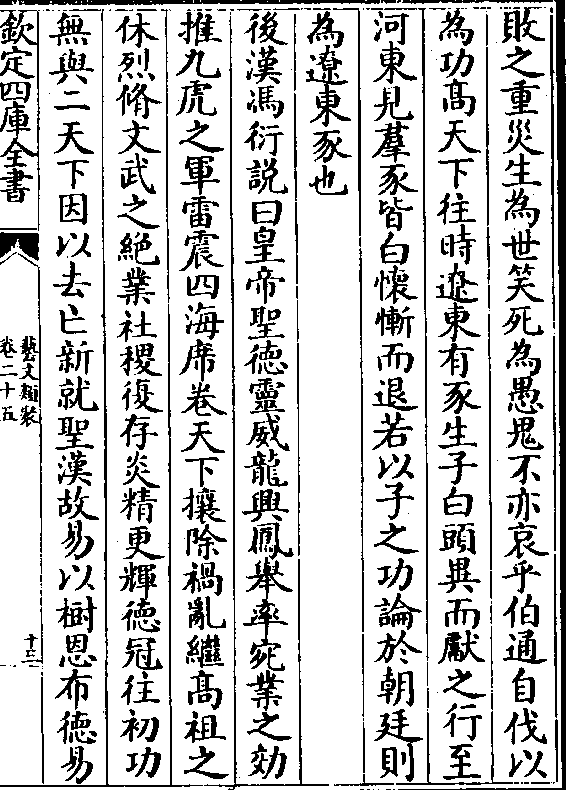 敗之重災生為世笑死為愚鬼不亦哀乎伯通自伐以
為功髙天下往時遼東有豕生子白頭異而獻之行至
河東見羣豕皆白懷慚而退若以子之功論於朝廷則
為遼東豕也
後漢馮衍説曰皇帝聖徳靈威龍興鳳舉率宛葉之効
推九虎之軍雷震四海席卷天下攘除禍亂繼髙祖之
休烈脩文武之絶業社稷復存炎精更輝徳冠往初功
無與二天下因以去亡新就聖漢故易以樹恩布徳易
欽定四庫全書
藝文類聚
卷二十五
十三